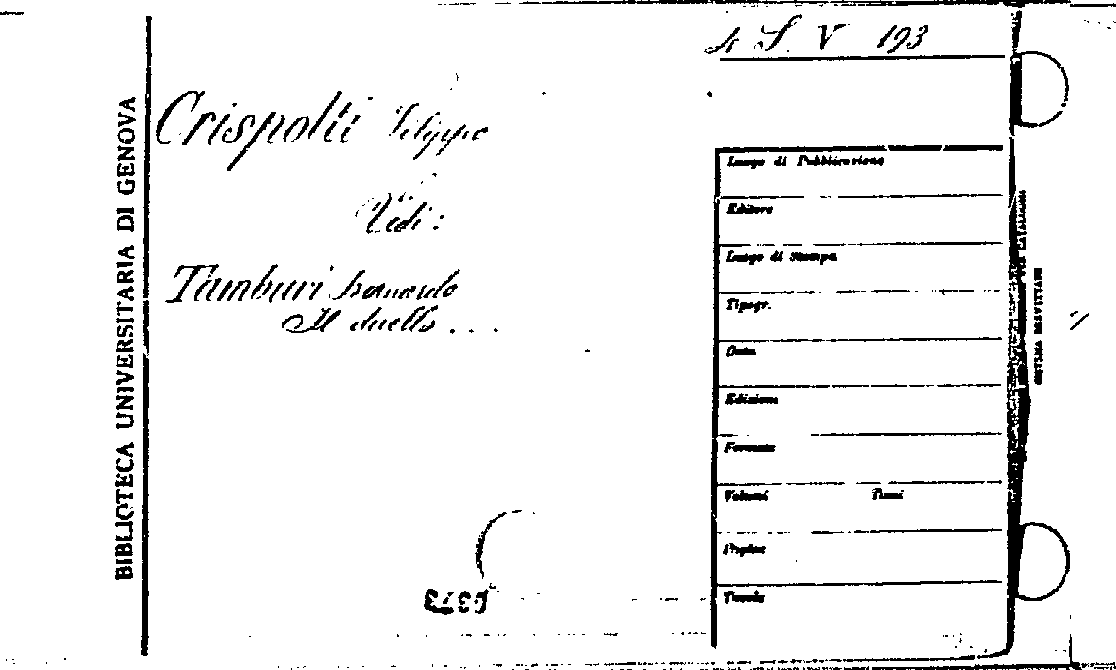 4 S. V 193
BIBLIOTECA UNIVERSITARIA DI GENOVA
Crispolti Filippo
Vedi:
Tamburi
Il duello ...
Luogo di Pubblicazione
Editore
Luogo di stampa
Tipogr.
Data
Edizione
Formato
Volumi Tomi
Pagine
Tavole